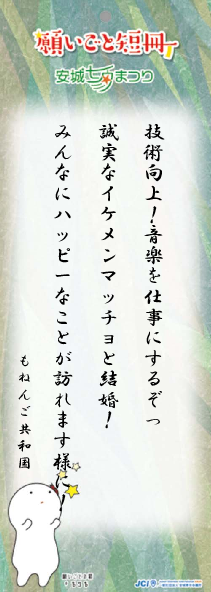 願いごと短冊
安城七夕まつり
技術向上!音楽を仕事にするぞっ
誠実なイケメンマッチョと結婚!
みんなにハッピーなことが訪れます様に
もねんご共和国
JCI